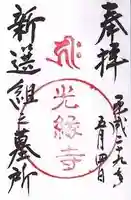 奉拝
平成二十九年
五月四日
光縁寺
新選組之墓所